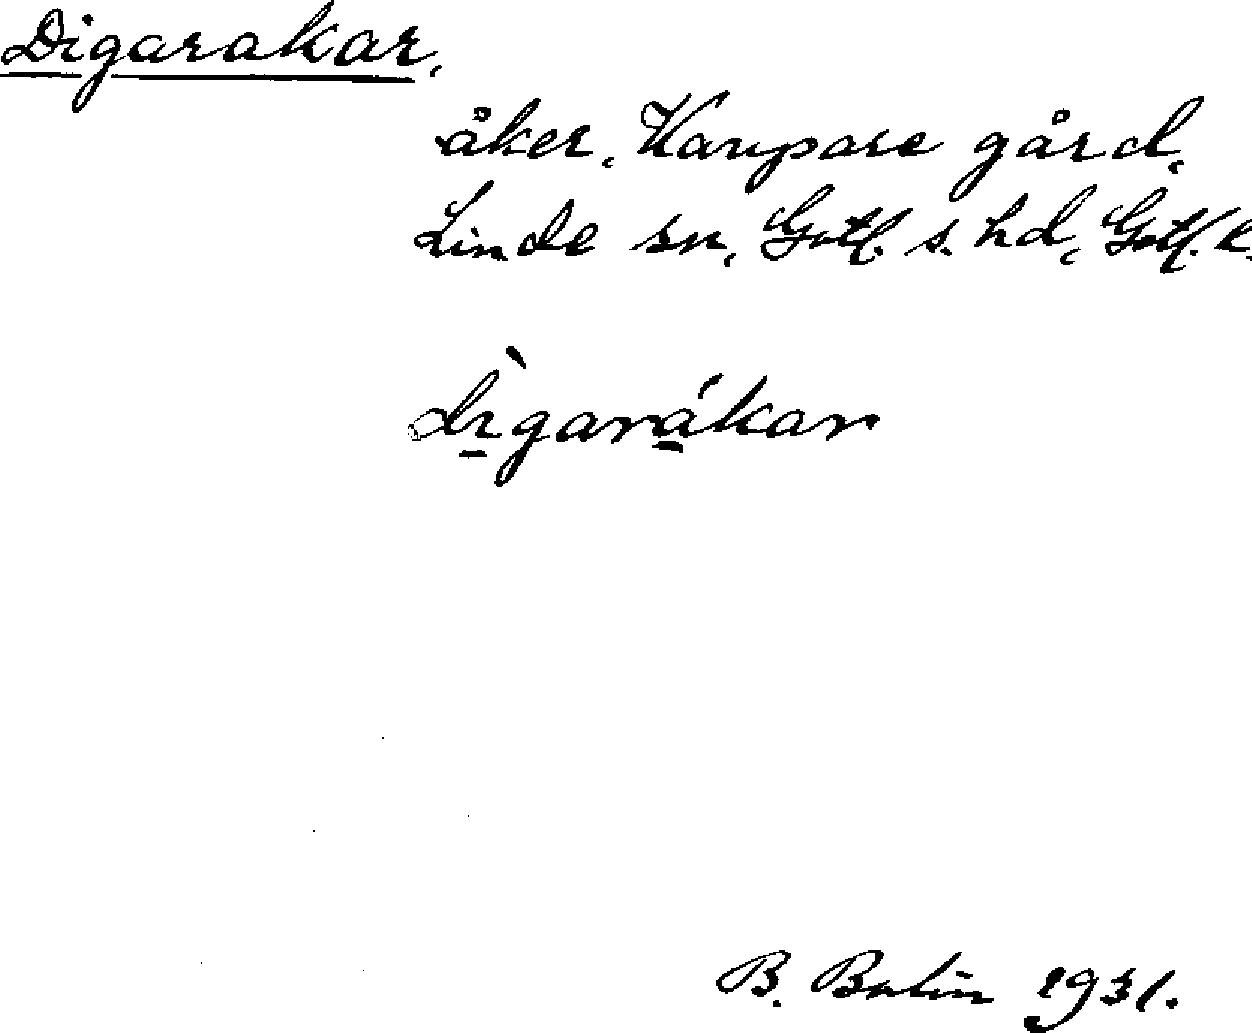 Digarakar,
åker, Kaupare gård,
Linde sn, Gotl. s. hd, Gotl. k.
dı̱̀gará̱kar
B. Bolin 1931.